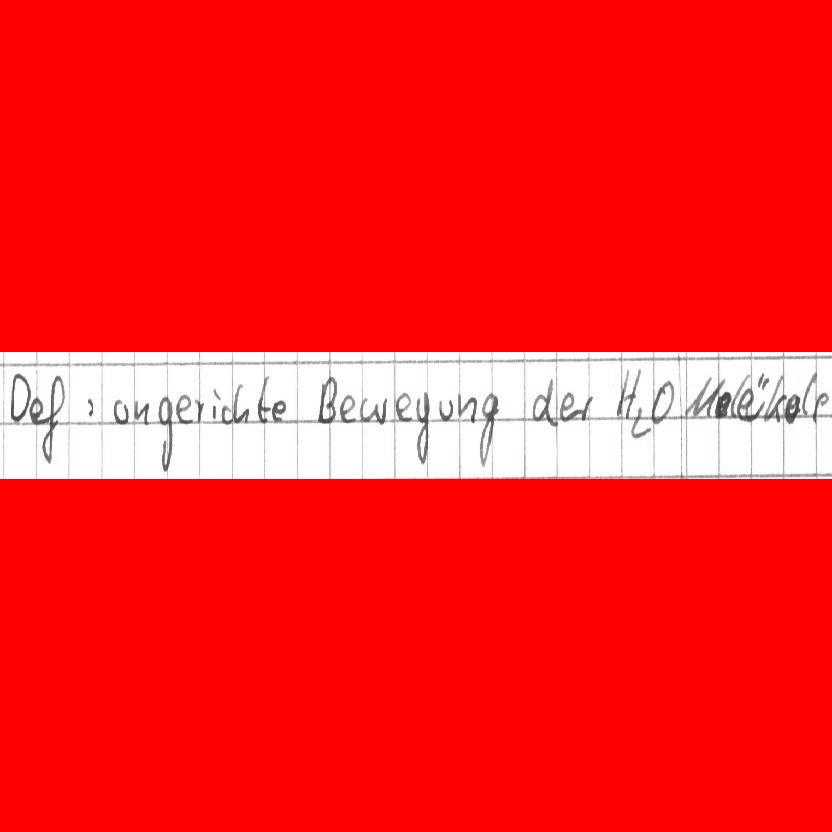 Def: ungerichte Bewegung der H₂O Moleküle